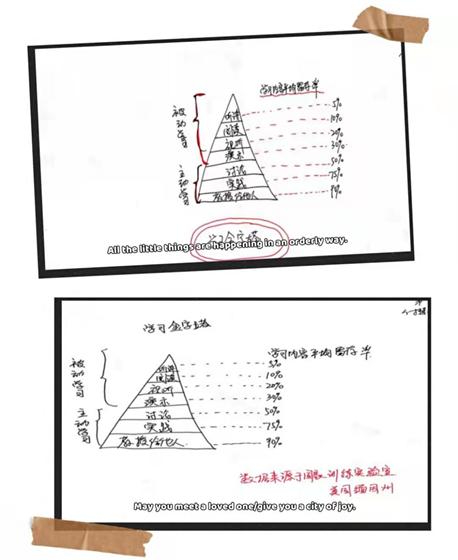 学习内容平均留存率
被动学习
听讲
阅读
视听
演示
主动学习
讨论
实践
教授给他人
5%
10%
20%
30%
50%
75%
90%
学习金字塔
All the little things are happening in an orderly way.
学习金字塔
学习内容平均留存率
被动学习
听讲
阅读
视听
演示
主动学习
讨论
实践
教授给他人
5%
10%
20%
30%
50%
75%
90%
数据来源于国家训练实验室
美国缅因州
May you meet a loved one/give you a city of joy.